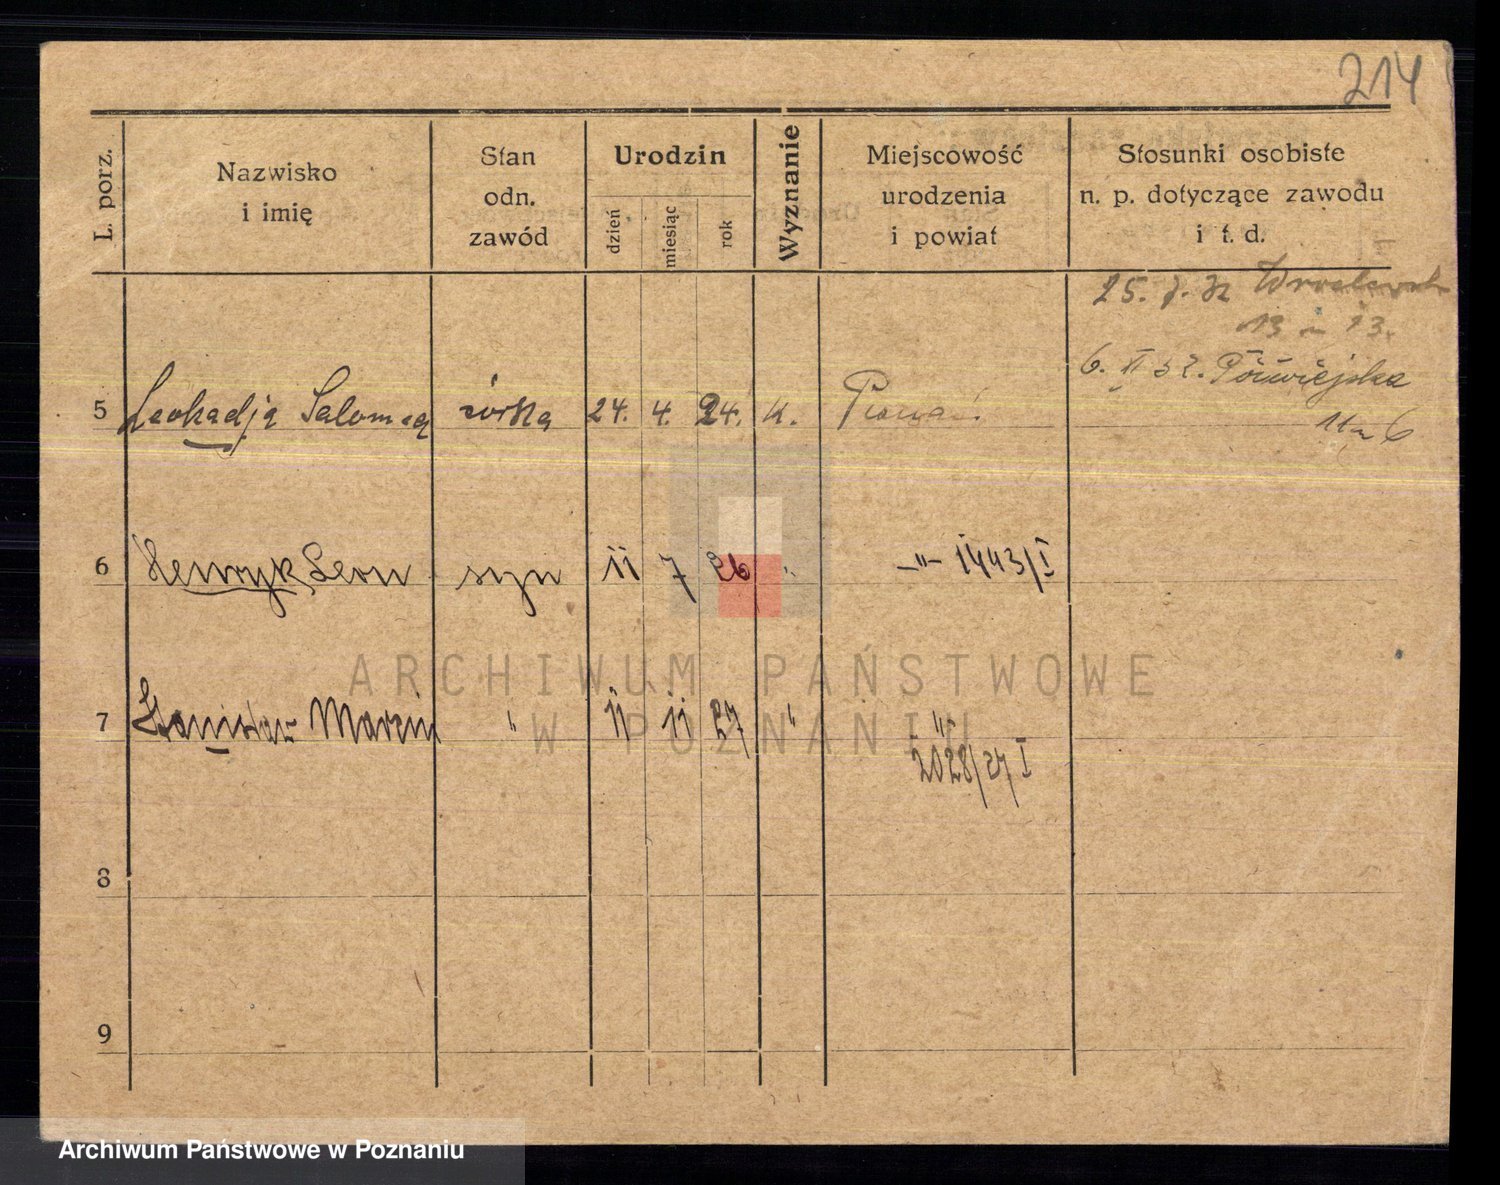 214
L. porz.
Nazwisko
i imię
Stan
odn.
zawód
Urodzin
dzień
miesiąc
rok
Wyznanie
Miejscowość
urodzenia
i powiat
Stosunki osobiste
n. p. dotyczące zawodu
i t. d.
25. 7. 32
13 m 13.
5 Leokadja Salomea córka 24. 4. 24. K. Poznań.
6.
6 Henryk Leon syn 11 7 26 " —"— 1443/I
7 Stanisław Marcin " 11 11 27 " "
2028/27 I
8
9
ARCHIWUM PAŃSTWOWE
W POZNANIU
Archiwum Państwowe w Poznaniu